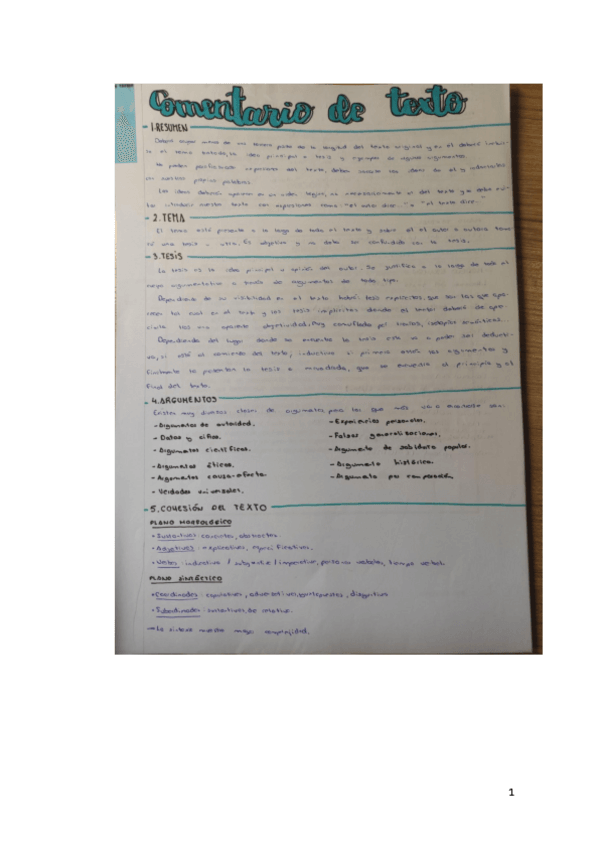 Comentario de texto
1. RESUMEN
Deberá ocupar menos de una tercera parte de la longitud del texto original y en él deberá
el tema tratado, la idea principal o tesis y ejemplos de algunos argumentos.
No pueden expresiones del texto, deben las ideas de él y
con nuestras propias palabras.
Las ideas deberán en un orden lógico, no necesariamente el del texto y se debe
introducir nuestro texto con expresiones como "el autor dice..." o "el texto dice..."
2. TEMA
El tema está presente a lo largo de todo el texto y sobre él el autor o autora
una tesis u otra. Es objetivo y no debe ser confundido con la tesis.
3. TESIS
La tesis es la idea principal u opinión del autor. Se justifica a lo largo de todo el
cuerpo argumentativo a través de argumentos de todo tipo.
Dependiendo de su visibilidad en el texto habrá tesis explícitas, que son las que
tal cual en el texto y las tesis implícitas donde el lector deberá de
objetividad.
Dependiendo del lugar donde se encuentre la tesis esta va a poder ser
si está al comienzo del texto, inductiva si primero están los argumentos y
finalmente la tesis o encuadrada, que se encuentra al principio y al
final del texto.
4. ARGUMENTOS
Existen muy diversas clases de argumentos, pero los que más van a son:
- Argumentos de autoridad.
- Datos y cifras.
- Argumentos científicos.
- Argumentos éticos.
- Argumentos causa-efecto.
- Verdades universales.
- Experiencias personales.
- Falsas generalizaciones.
- Argumento de sabiduría popular.
- Argumento histórico.
- Argumento por comparación
5. COHESIÓN DEL TEXTO
PLANO MORFOLÓGICO
• Sustantivos: concretos, abstractos
• Adjetivos: explicativos, especificativos.
• Verbos: indicativo / subjuntivo / imperativo, persona verbales, tiempo verbal.
PLANO SINTÁCTICO
• Coordinadas: copulativas, adversativas, disyuntivas
• Subordinadas: sustantivas, de relativo.
→ La sintaxis muestra mayor complejidad.
1